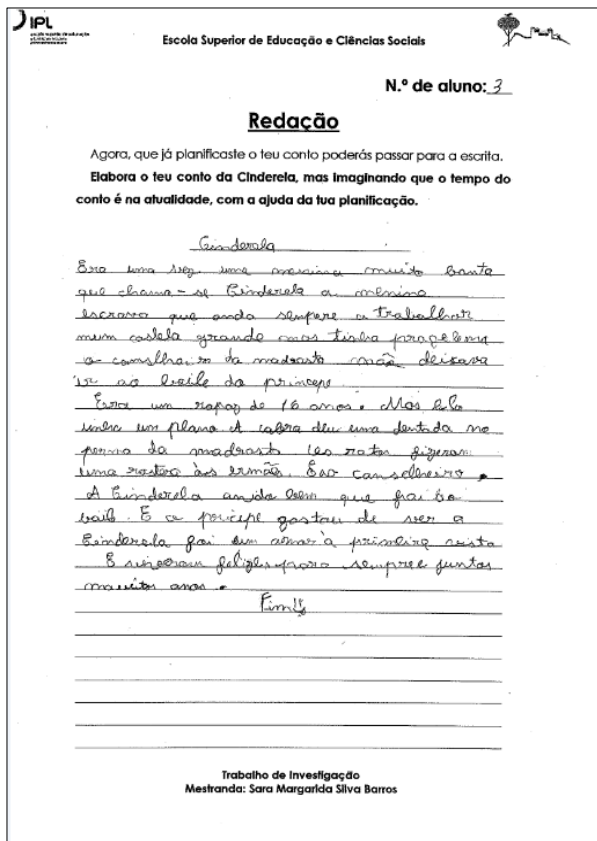 IPL
Escola Superior de Educação e Ciências Sociais
N.º de aluno: 3
Redação
Agora, que já planificaste o teu conto poderás passar para a escrita.
Elabora o teu conto da Cinderela, mas imaginando que o tempo do
conto é na atualidade, com a ajuda da tua planificação.
Cinderela
Era uma vez uma menina muito bonita
que chama-se Cinderela a menina
escrava que anda sempere a trabalhar
num castela grande mas tinha
o da madrasta não deixava
ir ao baile do principe.
Era um rapaz de 16 anos. Mas ela
tinha um plano. A cabra deu uma dentida no
perna da madrasta os ratos fizeram
uma às irmãs. E ao canselheiro.
A Cinderela ainda bem que foi ao
baile. E o pricepe gostou de ver a
Cinderela foi um amor à primeira vista
E viveram felizes para sempree juntos
muitos anos.
Fim!!
Trabalho de Investigação
Mestranda: Sara Margarida Silva Barros